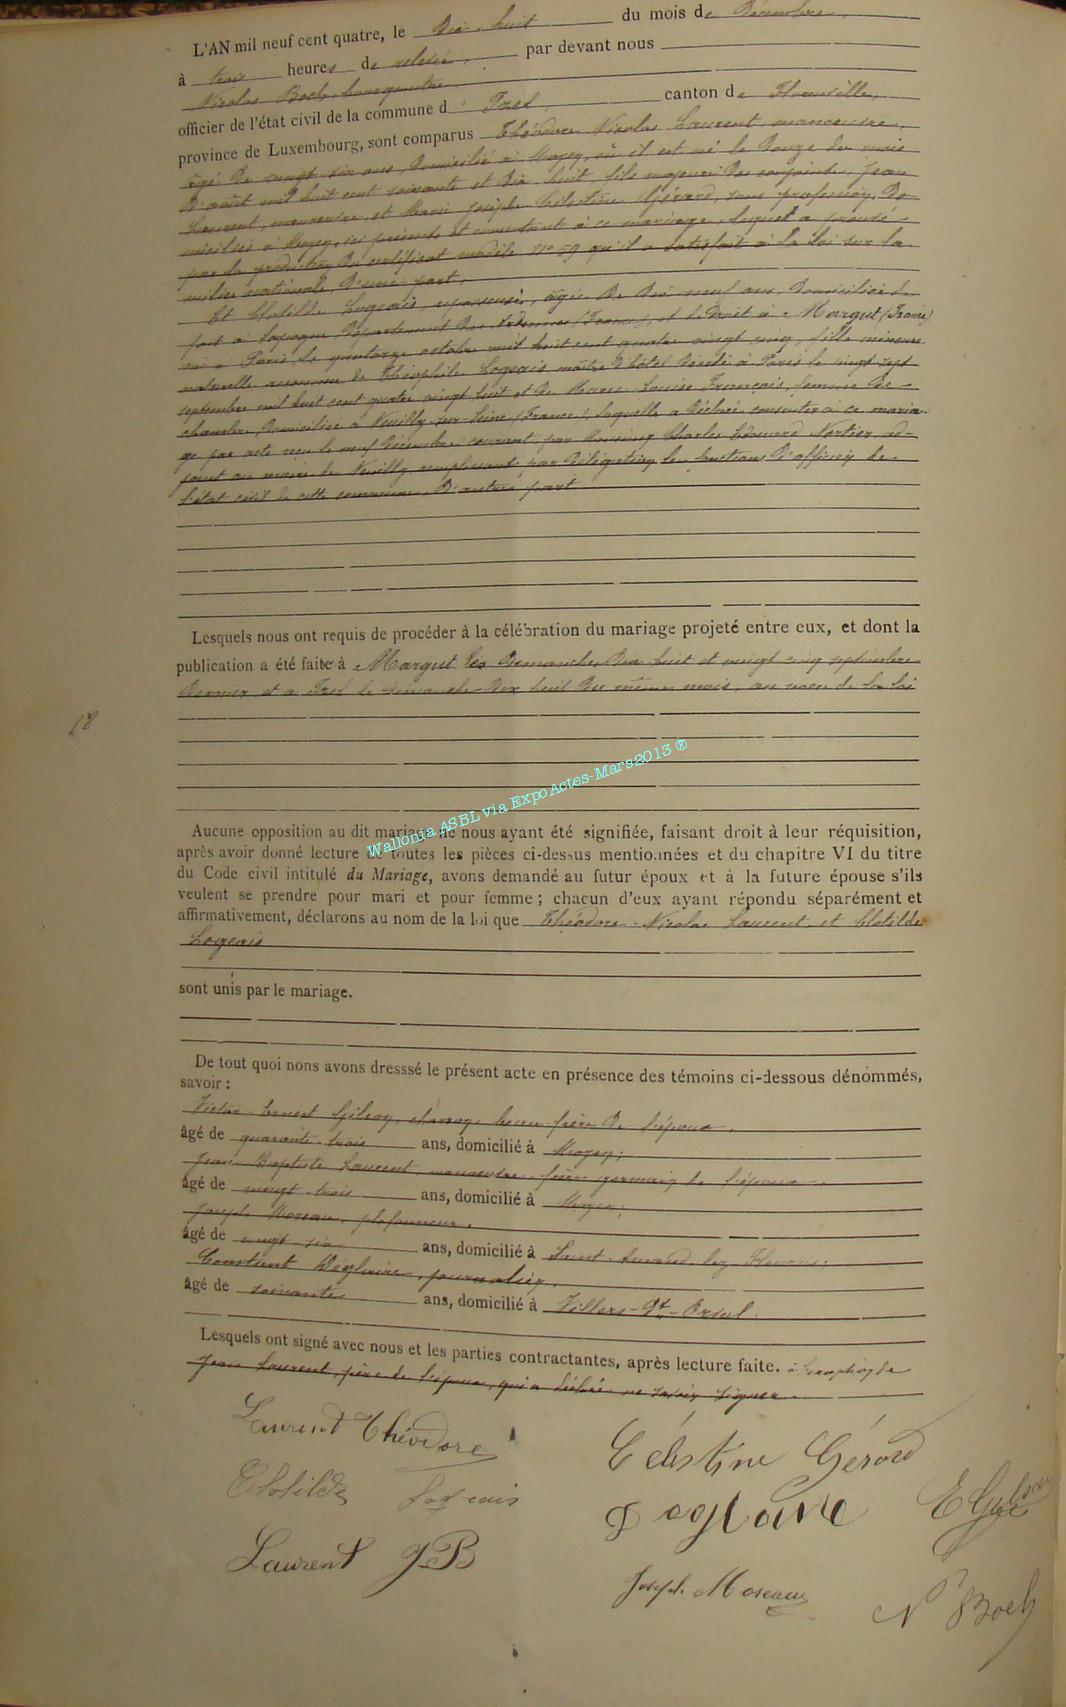 L'AN mil neuf cent quatre, le Dix-huit du mois de Décembre,
à trois heures de relevée, par devant nous
Nicolas Boch, bourgmestre
officier de l'état civil de la commune d' Izel, canton de Florenville,
province de Luxembourg, sont comparus Théodore Nicolas Laurent, manoeuvre,
âgé de vingt-six ans, domicilié à Moyen, où il est né le Douze du mois
d'août mil huit cent soixante et dix-huit, fils majeur des conjoints, Jean
Laurent, manoeuvre, et Marie Josèphe Célestine Gérard, sans profession, do-
miciliés à Moyen, ici présents et consentant à ce mariage, lequel a prouvé
par la production du certificat modèle N° 59 qu'il a satisfait à la loi sur la
milice nationale, D'une part,
Et Clotilde Logeais, repasseuse, âgée de dix-neuf ans, domiciliée de
fait à Sapogne Département des Ardennes (France), et de Droit à Margut (France)
née à Paris, le quatorze octobre mil huit cent quatre vingt cinq, fille mineure
naturelle reconnue de Théophile Logeais maître d'hôtel décédé à Paris le vingt-sept
septembre mil huit cent quatre vingt huit et de Marie Louise François, femme de
chambre, domiciliée à Neuilly-sur-Seine (France), laquelle a déclaré consentir à ce maria-
ge par acte reçu le neuf Décembre courant, par Monsieur Charles Edouard Nortier, ad-
joint au maire de Neuilly remplissant par délégation les fonctions d'officier de
l'état civil de cette commune, D'autre part
Lesquels nous ont requis de procéder à la célébration du mariage projeté entre eux, et dont la
publication a été faite à Margut les Dimanches Dix huit et vingt cinq septembre
dernier et à Izel le dimanche Dix huit du même mois, au voeu de la loi
18
Wallonia ASBL via ExpoActes-Mars2013 ®
Aucune opposition au dit mariage ne nous ayant été signifiée, faisant droit à leur réquisition,
après avoir donné lecture de toutes les pièces ci-dessus mentionnées et du chapitre VI du titre
du Code civil intitulé du Mariage, avons demandé au futur époux et à la future épouse s'ils
veulent se prendre pour mari et pour femme ; chacun d'eux ayant répondu séparément et
affirmativement, déclarons au nom de la loi que Théodore-Nicolas Laurent, et Clotilde
Logeais
sont unis par le mariage.
De tout quoi nons avons dresssé le présent acte en présence des témoins ci-dessous dénommés,
savoir :
Victor Ernest Gilson, charron, beau-frère de l'époux,
âgé de quarante-trois ans, domicilié à Moyen;
Jean-Baptiste Laurent, manoeuvre, frère germain de l'époux,
âgé de vingt-trois ans, domicilié à Moyen;
Joseph Moreau, plafonneur,
âgé de vingt-six ans, domicilié à Saint-Amand-lez-Fleurus;
Constant Déglaire, journalier,
âgé de soixante ans, domicilié à Villers-Dt-Orval.
Lesquels ont signé avec nous et les parties contractantes, après lecture faite. à l'exception de
Jean Laurent, père de l'époux, qui a déclaré ne savoir signer.
Laurent Théodore
Célestine Gérard
Clotilde Logeais
Deglaire
E Gilson
Laurent JB
Joseph Moreau
N Boch